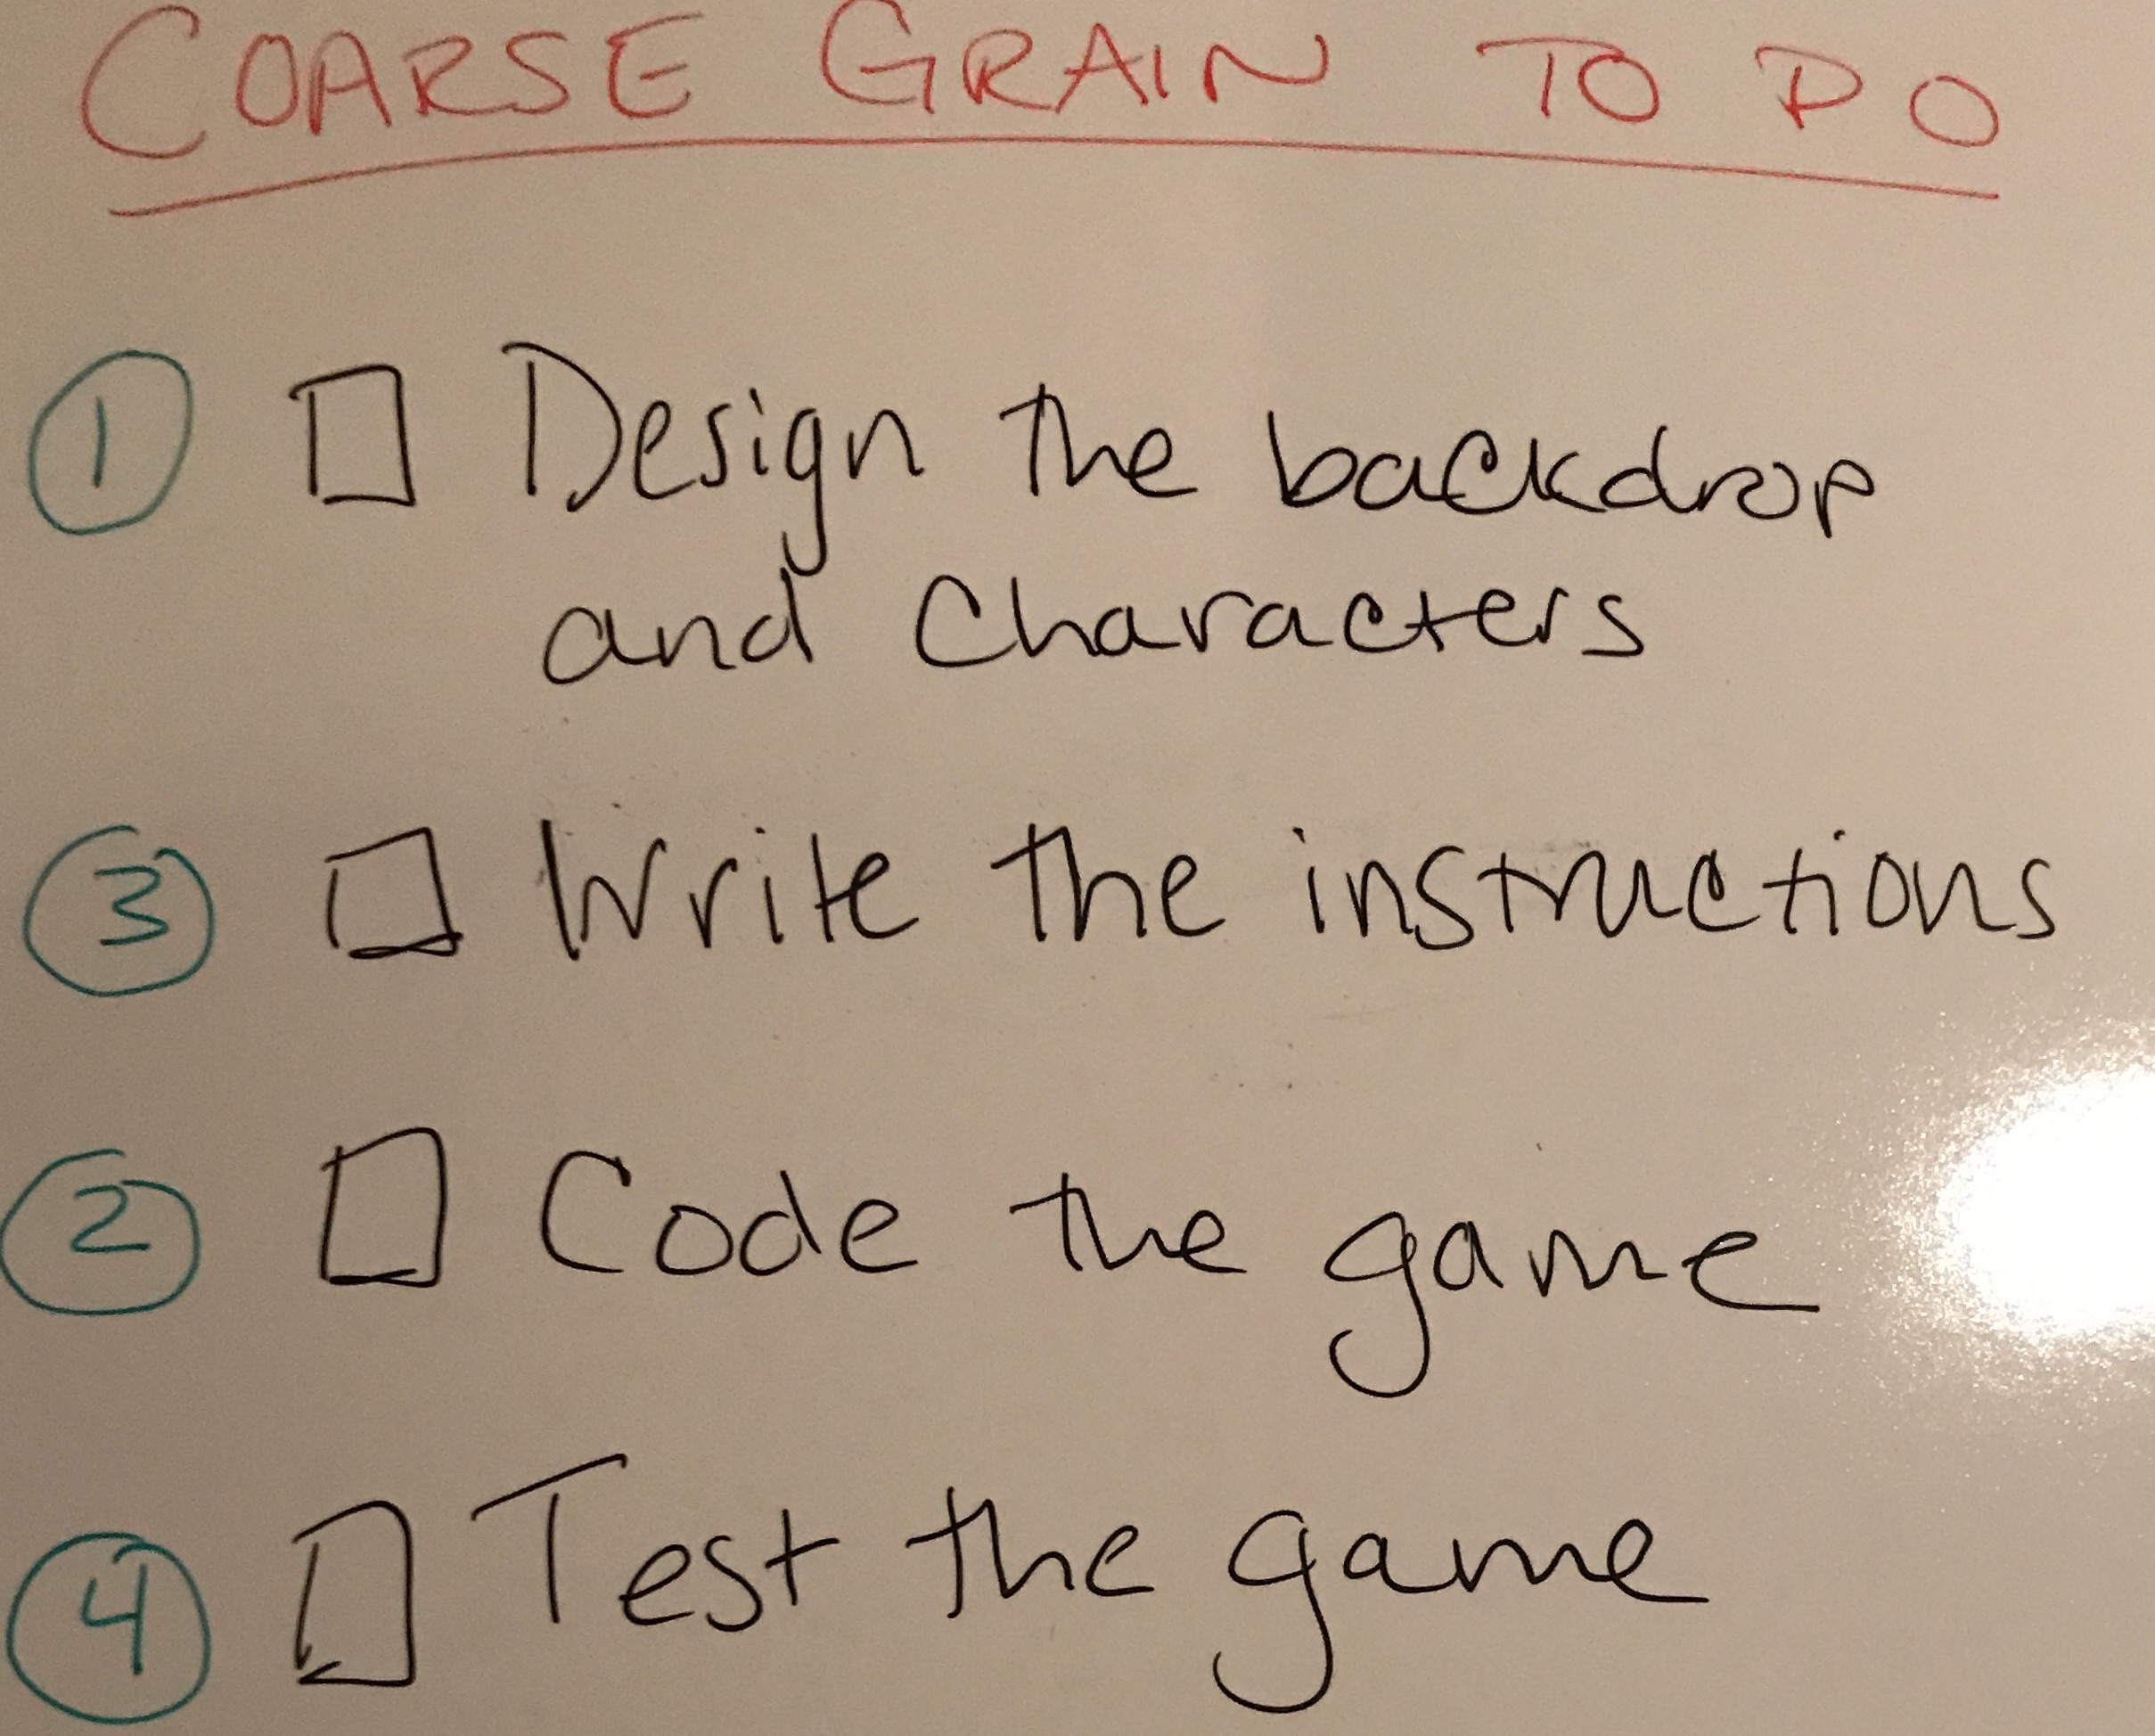 COARSE GRAIN TO DO
1 Design the backdrop
and Characters
3 Write the instructions
2 Code the game
4 Test the game